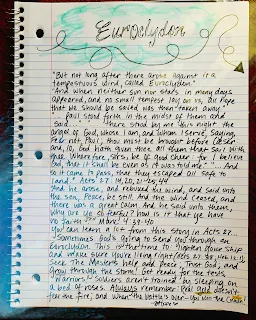 Euroclydon
"But not long after there arose against it a
tempestuous wind, called Euroclydon."
"And when neither sun nor stars in many days
appeared, and no small tempest lay on us, all hope
that we should be saved was then taken away."
"... Paul stood forth in the midst of them and
said... "There stood by me this night the
angel of God, whose I am, and whom I serve, Saying,
Fear not, Paul; thou must be brought before Caesar:
and, lo, God hath given thee all them that sail with
thee. Wherefore, sirs, be of good cheer: for I believe
God, that it shall be even as it was told me."... And
so it came to pass, that they escaped all safe to
land." Acts 27: 14, 20, 21-25, 44
"And he arose, and rebuked the wind, and said unto
the sea, Peace, be still. And the wind ceased, and
there was a great calm. And he said unto them,
Why are ye so fearful? how is it that ye have
no faith?" Mark 4: 39-40
You can learn a lot from this story in Acts 27...
Sometimes God's going to send you through an
Euroclydon. This is the time to
and make sure you're living right
Seek The Master's help and peace, Trust God, and
Grow through the storm! Get ready for the tests
in armor. Soldiers aren't trained by sleeping on
a bed of roses. Always remember: Pray and
the fire, and when the battle is over - you win the